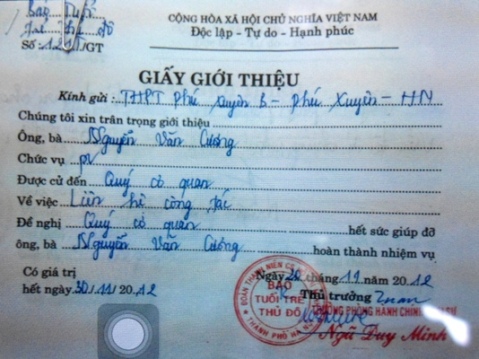 Báo Tuổi
Trẻ Thủ đô
CỘNG HÒA XÃ HỘI CHỦ NGHĨA VIỆT NAM
Độc lập - Tự do - Hạnh phúc
Số: /GT
GIẤY GIỚI THIỆU
Kính gửi: THPT Phú Xuyên B - Phú Xuyên - HN
Chúng tôi xin trân trọng giới thiệu
Ông, bà Nguyễn Văn Cương
Chức vụ pv
Được cử đến Quý cơ quan
Về việc Liên hệ công tác
Đề nghị Quý cơ quan hết sức giúp đỡ
ông, bà Nguyễn Văn Cương hoàn thành nhiệm vụ
Có giá trị
hết ngày 30/11/2012
Ngày tháng 11 năm 2012
Thủ trưởng
ĐOÀN THANH NIÊN
BÁO
TUỔI TRẺ
THỦ ĐÔ
THÀNH PHỐ HÀ NỘI
TRƯỞNG PHÒNG HÀNH CHÍNH
Ngã Duy Minh